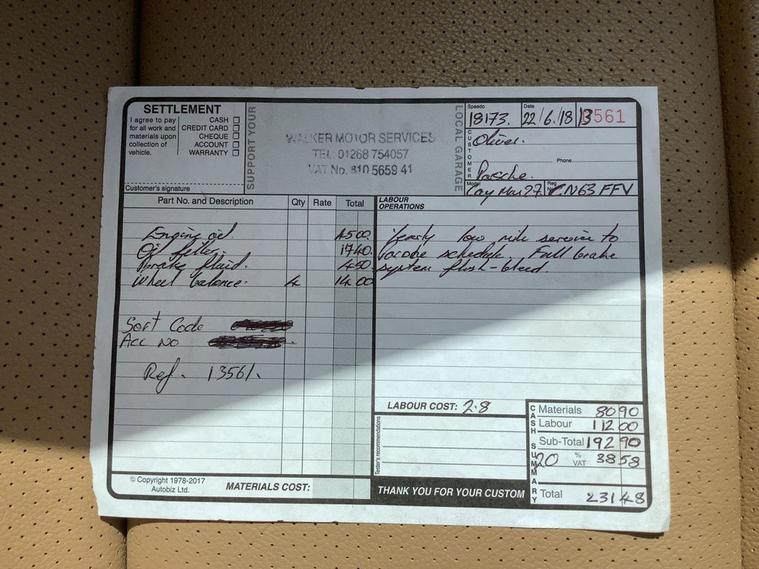 SETTLEMENT
I agree to pay for all work and materials upon collection of vehicle.
CASH
CREDIT CARD
CHEQUE
ACCOUNT
WARRANTY
Customer's signature
SUPPORT YOUR
WALKER MOTOR SERVICES
TEL: 01268 754057
VAT No. 810 5659 41
LOCAL GARAGE
Speedo 18173. Date 22/6/18 13561
CUSTOMER
Oliver.
Phone
Porsche.
Model Cay Man 27 Reg. N63 FFV
Part No. and Description Qty Rate Total
LABOUR OPERATIONS
Engine oil 4500
Oil filter. 1740
Brake fluid. 450
Wheel balance. 4 14 00
Yearly low mile service to
schedule. Full brake
system flush-bleed.
Sort Code
Acc No
Ref. 13561.
LABOUR COST: 2.8
CASH SUMMARY
Materials 80 90
Labour 112 00
Sub-Total 192 90
20 % VAT 38 58
Total 231 48
© Copyright 1978-2017
Autobiz Ltd.
MATERIALS COST:
THANK YOU FOR YOUR CUSTOM